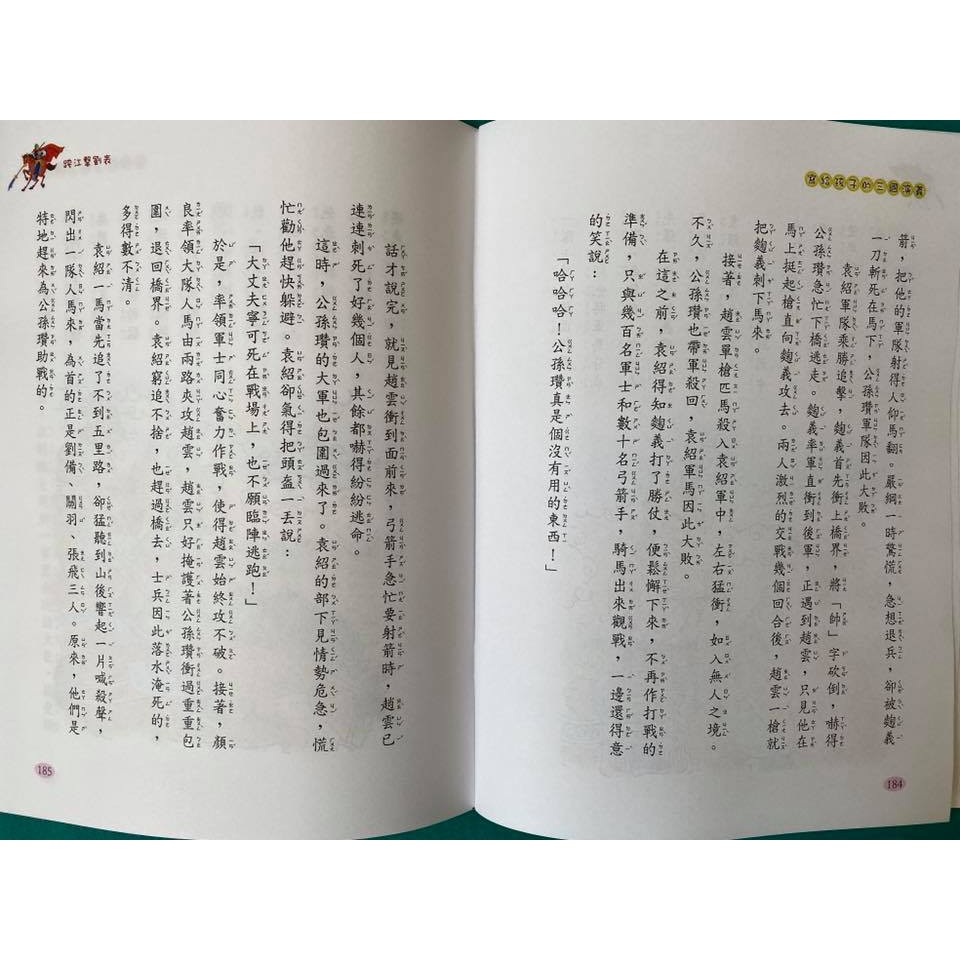 寫給孩子的三國演義
箭，把他的軍隊射得人仰馬翻。嚴綱一時驚慌，急想退兵，卻被麴義
一刀斬死在馬下，公孫瓚軍隊因此大敗。
袁紹軍隊乘勝追擊，麴義首先衝上橋界，將「帥」字砍倒，嚇得
公孫瓚急忙下橋逃走。麴義率軍直衝到後軍，正遇到趙雲，只見他在
馬上挺起槍直向麴義攻去。兩人激烈的交戰幾個回合後，趙雲一槍就
把麴義刺下馬來。
接著，趙雲單槍匹馬殺入袁紹軍中，左右猛衝，如入無人之境。
不久，公孫瓚也帶軍殺回，袁紹軍馬因此大敗。
在這之前，袁紹得知麴義打了勝仗，便鬆懈下來，不再作打戰的
準備，只與幾百名軍士和數十名弓箭手，騎馬出來觀戰，一邊還得意
的笑說：
「哈哈哈！公孫瓚真是個沒有用的東西！」
184
跨江擊劉表
話才說完，就見趙雲衝到面前來，弓箭手急忙要射箭時，趙雲已
連連刺死了好幾個人，其餘都嚇得紛紛逃命。
這時，公孫瓚的大軍也包圍過來了。袁紹的部下見情勢危急，慌
忙勸他趕快躲避。袁紹卻氣得把頭盔一丟說：
「大丈夫寧可死在戰場上，也不願臨陣逃跑！」
於是，率領軍士同心奮力作戰，使得趙雲始終攻不破。接著，顏
良率領大隊人馬由兩路來夾攻趙雲，趙雲只好掩護著公孫瓚衝過重重包
圍，退回橋界。袁紹窮追不捨，也趕過橋去，士兵因此落水淹死的，
多得數不清。
袁紹一馬當先追了不到五里路，卻猛聽到山後響起一片喊殺聲，
閃出一隊人馬來，為首的正是劉備、關羽、張飛三人。原來，他們是
特地趕來為公孫瓚助戰的。
185